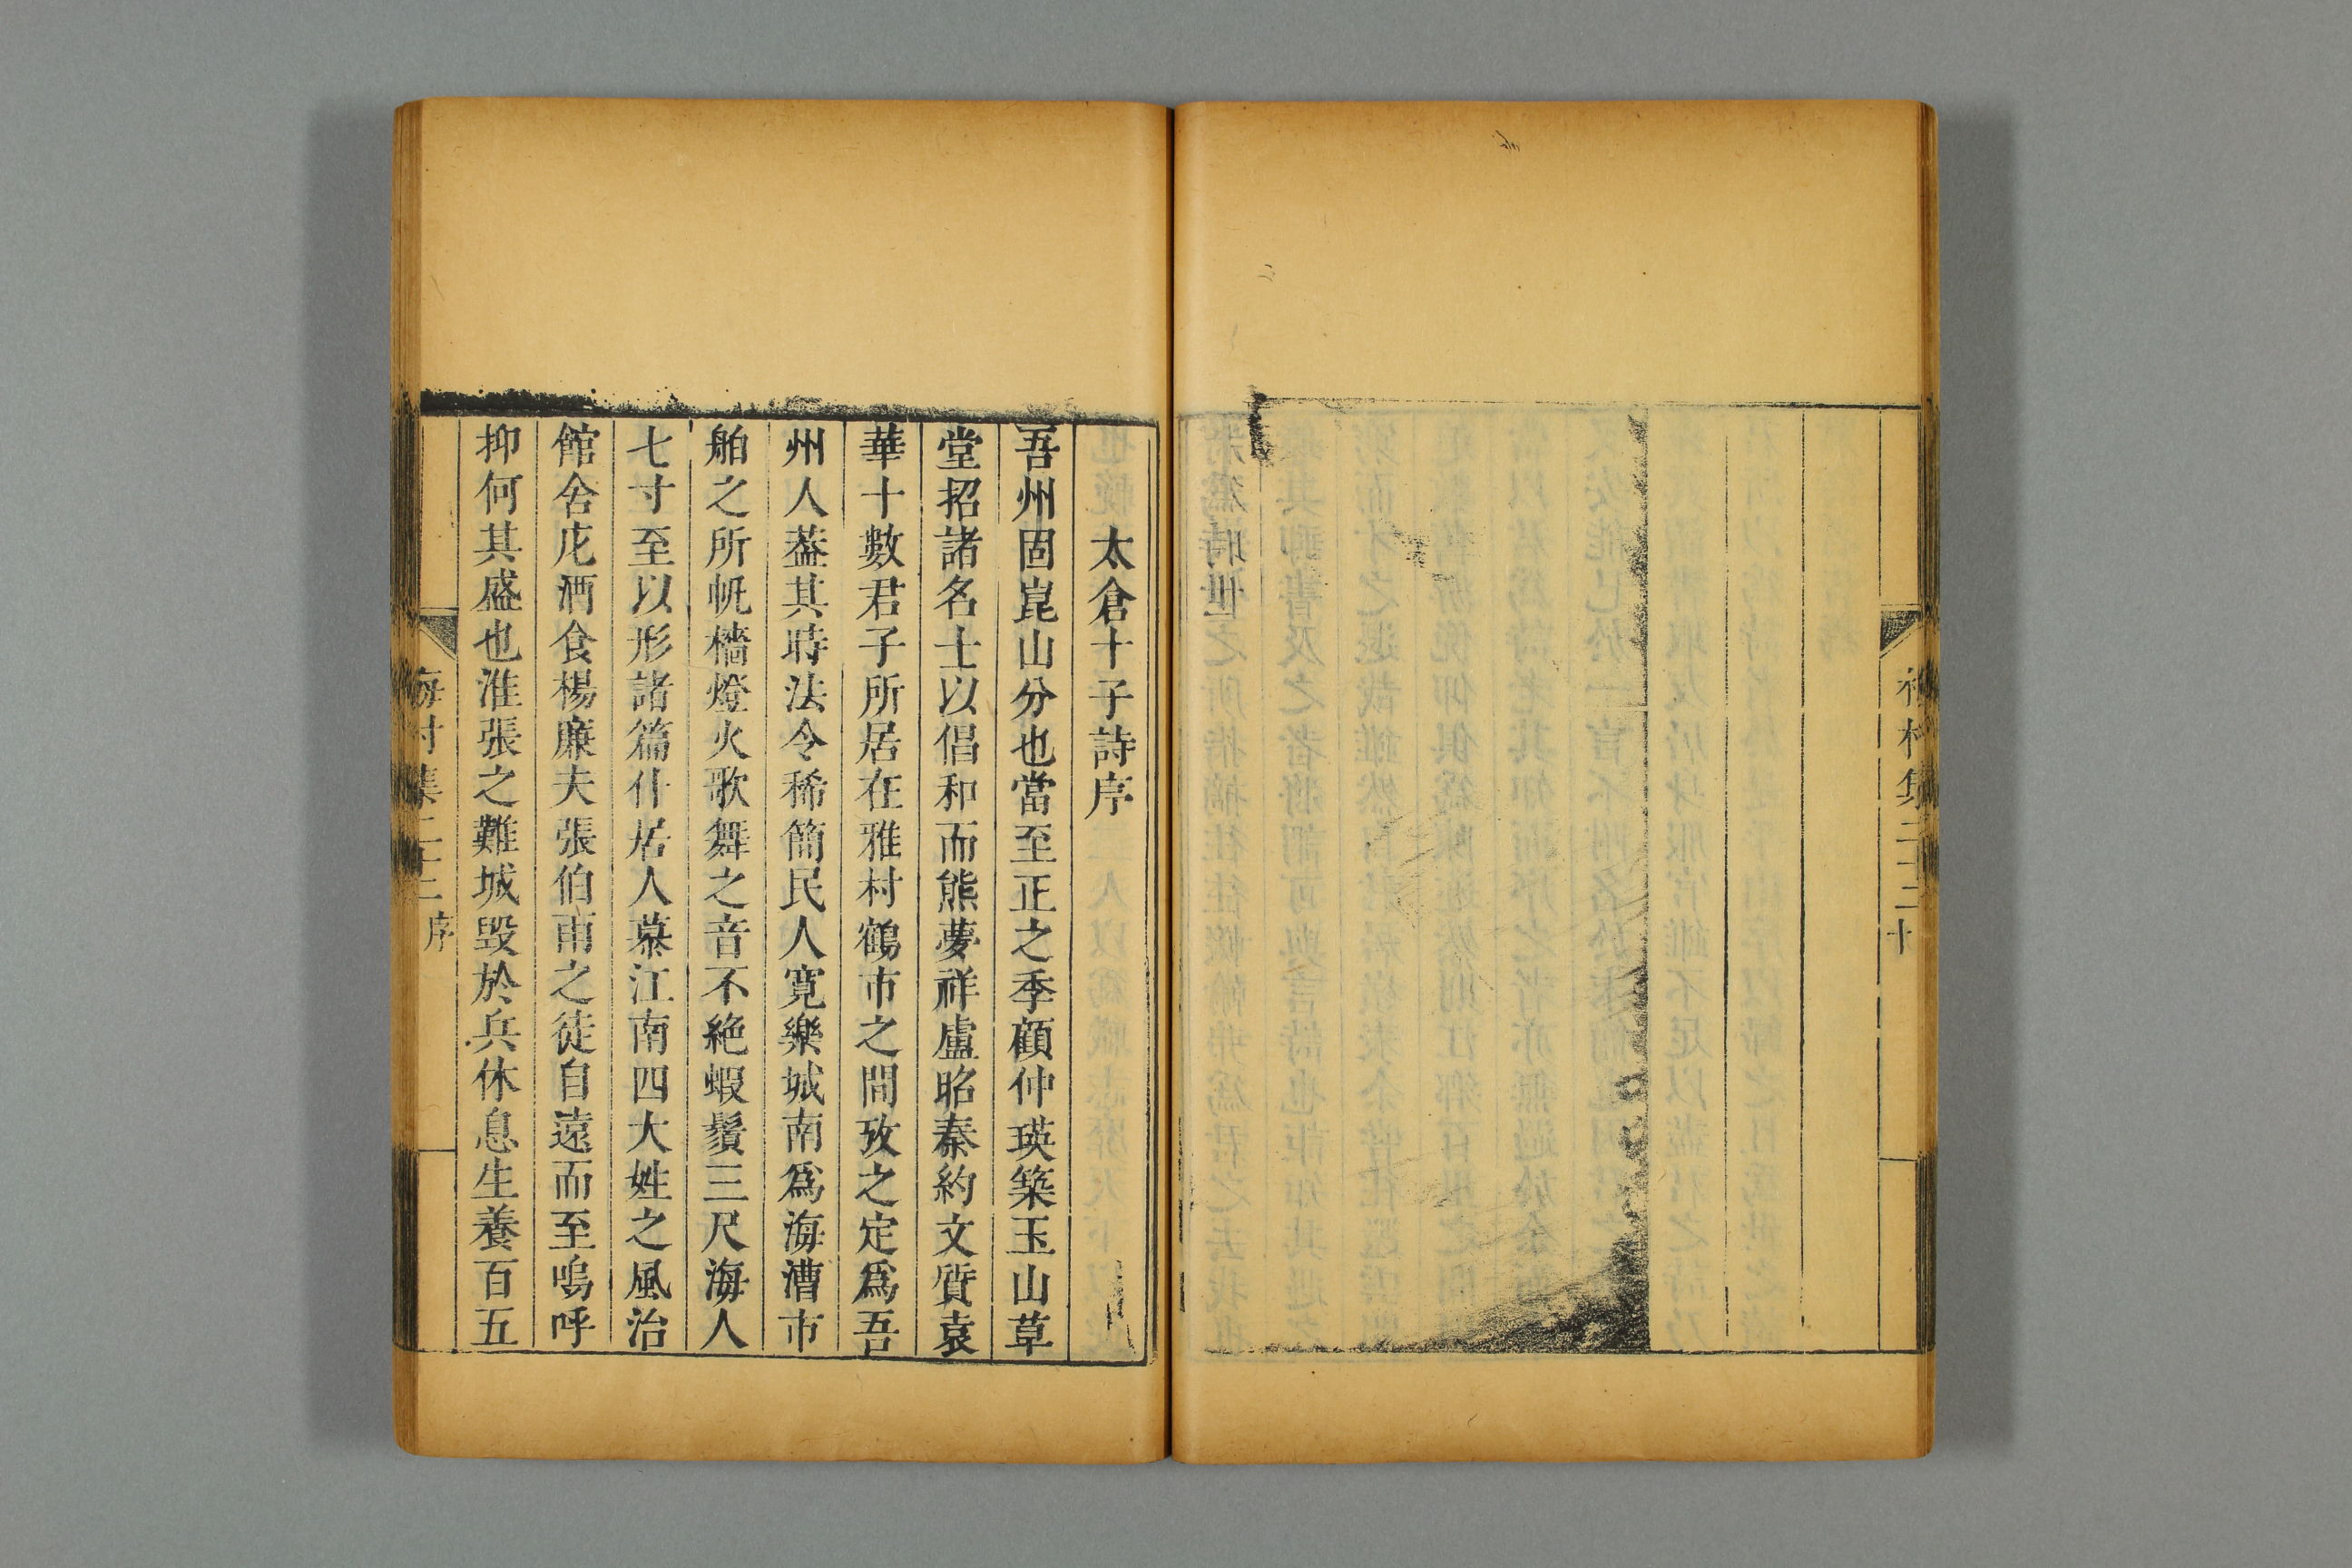 太倉十子詩序
吾州固崑山分也當至正之季顧仲瑛築玉山草
堂招諸名士以倡和而熊夢祥盧昭秦約文質袁
華十數君子所居在雅村鶴市之間攷之定爲吾
州人葢其時法令稀簡民人寛樂城南爲海漕市
舶之所帆檣燈火歌舞之音不絶蝦鬚三尺海人
七寸至以形諸篇什居人慕江南四大姓之風治
館舍庀酒食楊廉夫張伯雨之徒自遠而至嗚呼
抑何其盛也淮張之難城毀於兵休息生養百五
村集二十二序